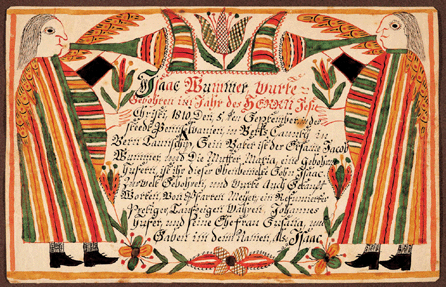 Isaac Wummer wurde
Gebohren im Jahr des HERRN Jesu
Christi, 1810, Den 5, ten September, in der
Pen Silvanien, in Berks Caunty
Bern Taunschip, Sein Vater ist der Ersame Jacob
Wummer, und Die Mutter, Maria, eine Gebohrne
Hufern, ist ihr dieser Sohn Isaac
Gebohren, und wurde Auch Getauft
Worden Von Pfarren Meyer, ein Refmierter
Prediger Taufzeugen Wahren, Johannes
Hufer, und seine Ehefrau Susana, und
Gaben im dem Namen, Als, Isaac